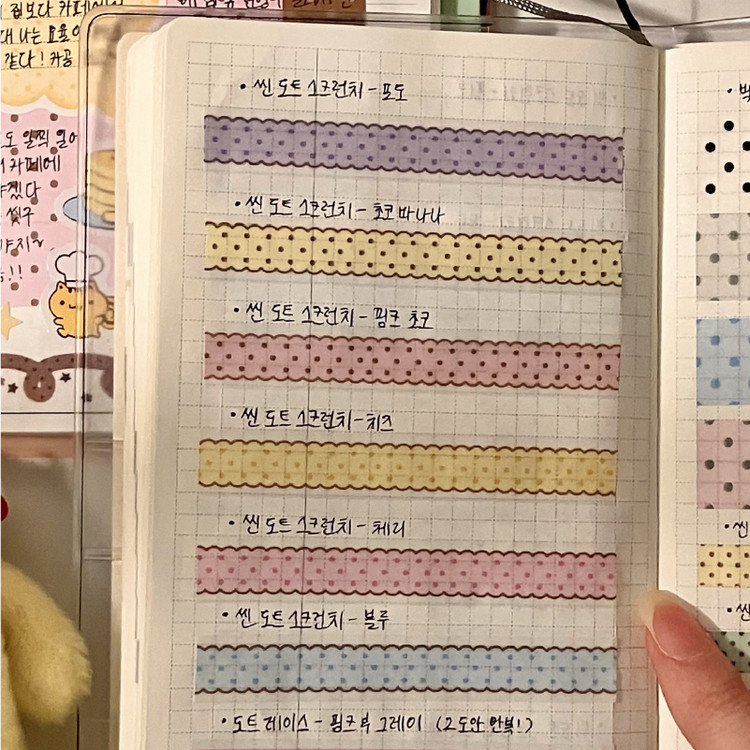 집보다 카페에서
대 나는 요즘
같다! 카공
도 일찍 일어
카페에
야겠다
씬 도트 스크런치 - 포도
씬 도트 스크런치 - 초코바나나
씬 도트 스크런치 - 핑크 초코
씬 도트 스크런치 - 치즈
씬 도트 스크런치 - 체리
씬 도트 스크런치 - 블루
도트레이스 - 핑크 & 그레이 (2도안 반복!)
씬
씬